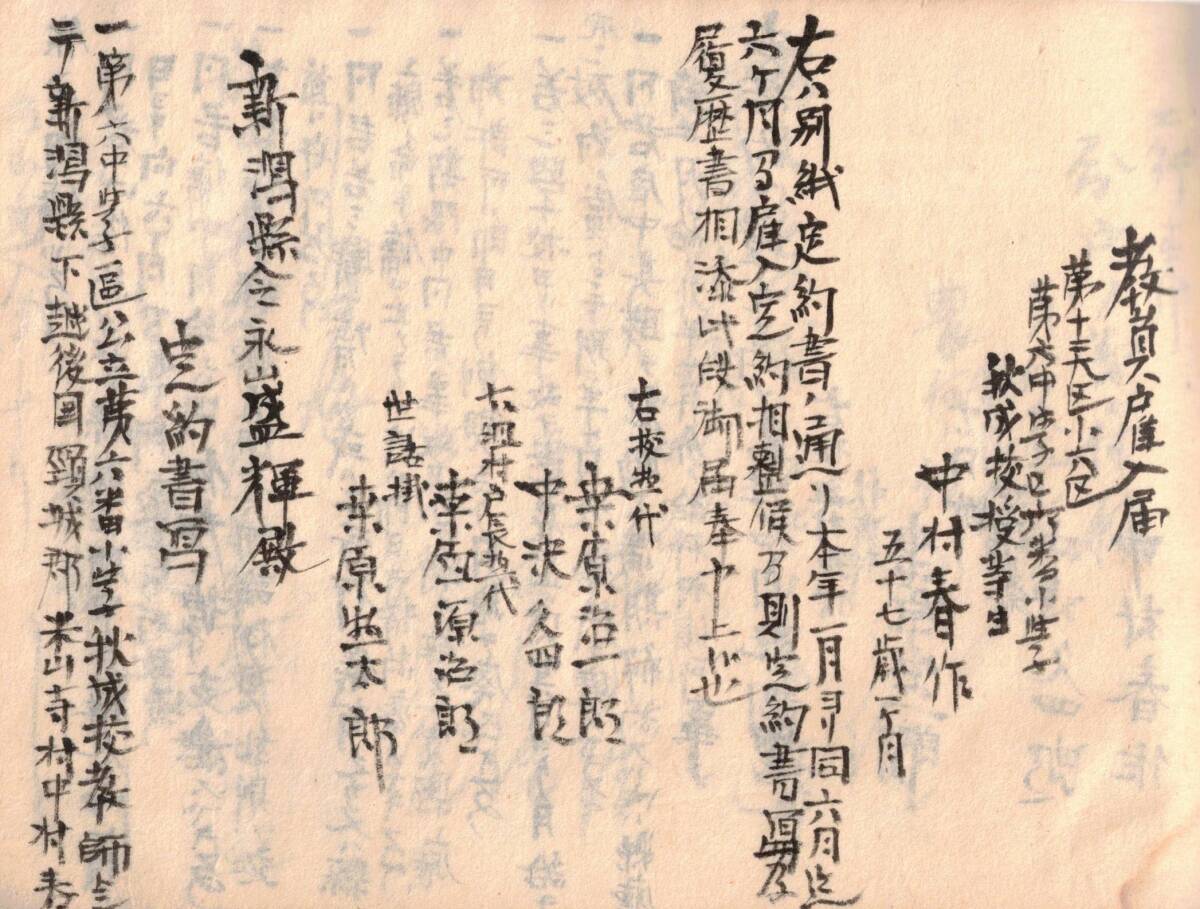 教員雇入届
第十六大区小六区
第六中学区六番小学
秋成校授業生
中村春作
五十七歳一ヶ月
右ハ別紙定約書ノ通リ本年一月ヨリ同六月迄
六ヶ月間雇入定約相整候乃則定約書写及
履歴書相添此段御届奉申上候也
右校惣代
桒原治一郎
中沢久四郎
村戸長惣代
桒原源治郎
世話掛
桒原惣太郎
新潟縣令永山盛輝殿
定約書写
一第六中学区公立第六番小学秋成校教師
新潟縣下越後国頸城郡米山寺村中村春